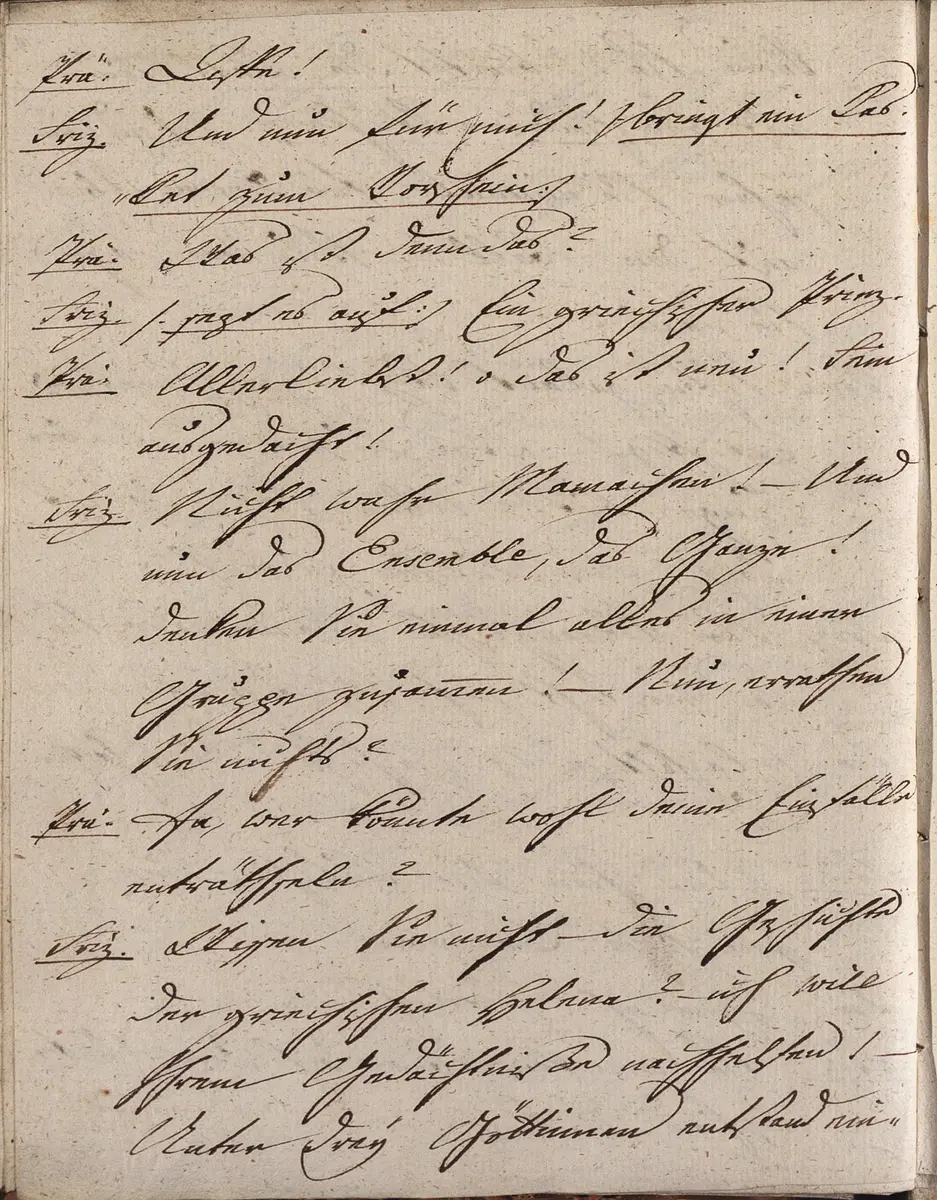 Prä. Beste!
Friz. Und nun für mich! /:bringt ein Cas-
"ket zum Vorschein:/
Prä. Was ist denn das?
Friz. /: sezt es auf:/ Ein griechischer Prinz.
Prä. Allerliebst! o das ist neu! Fein
ausgedacht!
Friz. Nicht wahr Mamachen! – Und
nun das Ensemble, das Ganze!
denken Sie einmal alles in einer
Gruppe zusam̅en! – Nun, errathen
Sie nichts?
Prä. Ja, wer könnte wohl deine Einfälle
enträthseln?
Friz. Wissen Sie nicht die Geschichte
der griechischen Helena? – ich will
Ihrem Gedächtniße nachhelfen! –
Unter drey Göttinnen entstand ein"